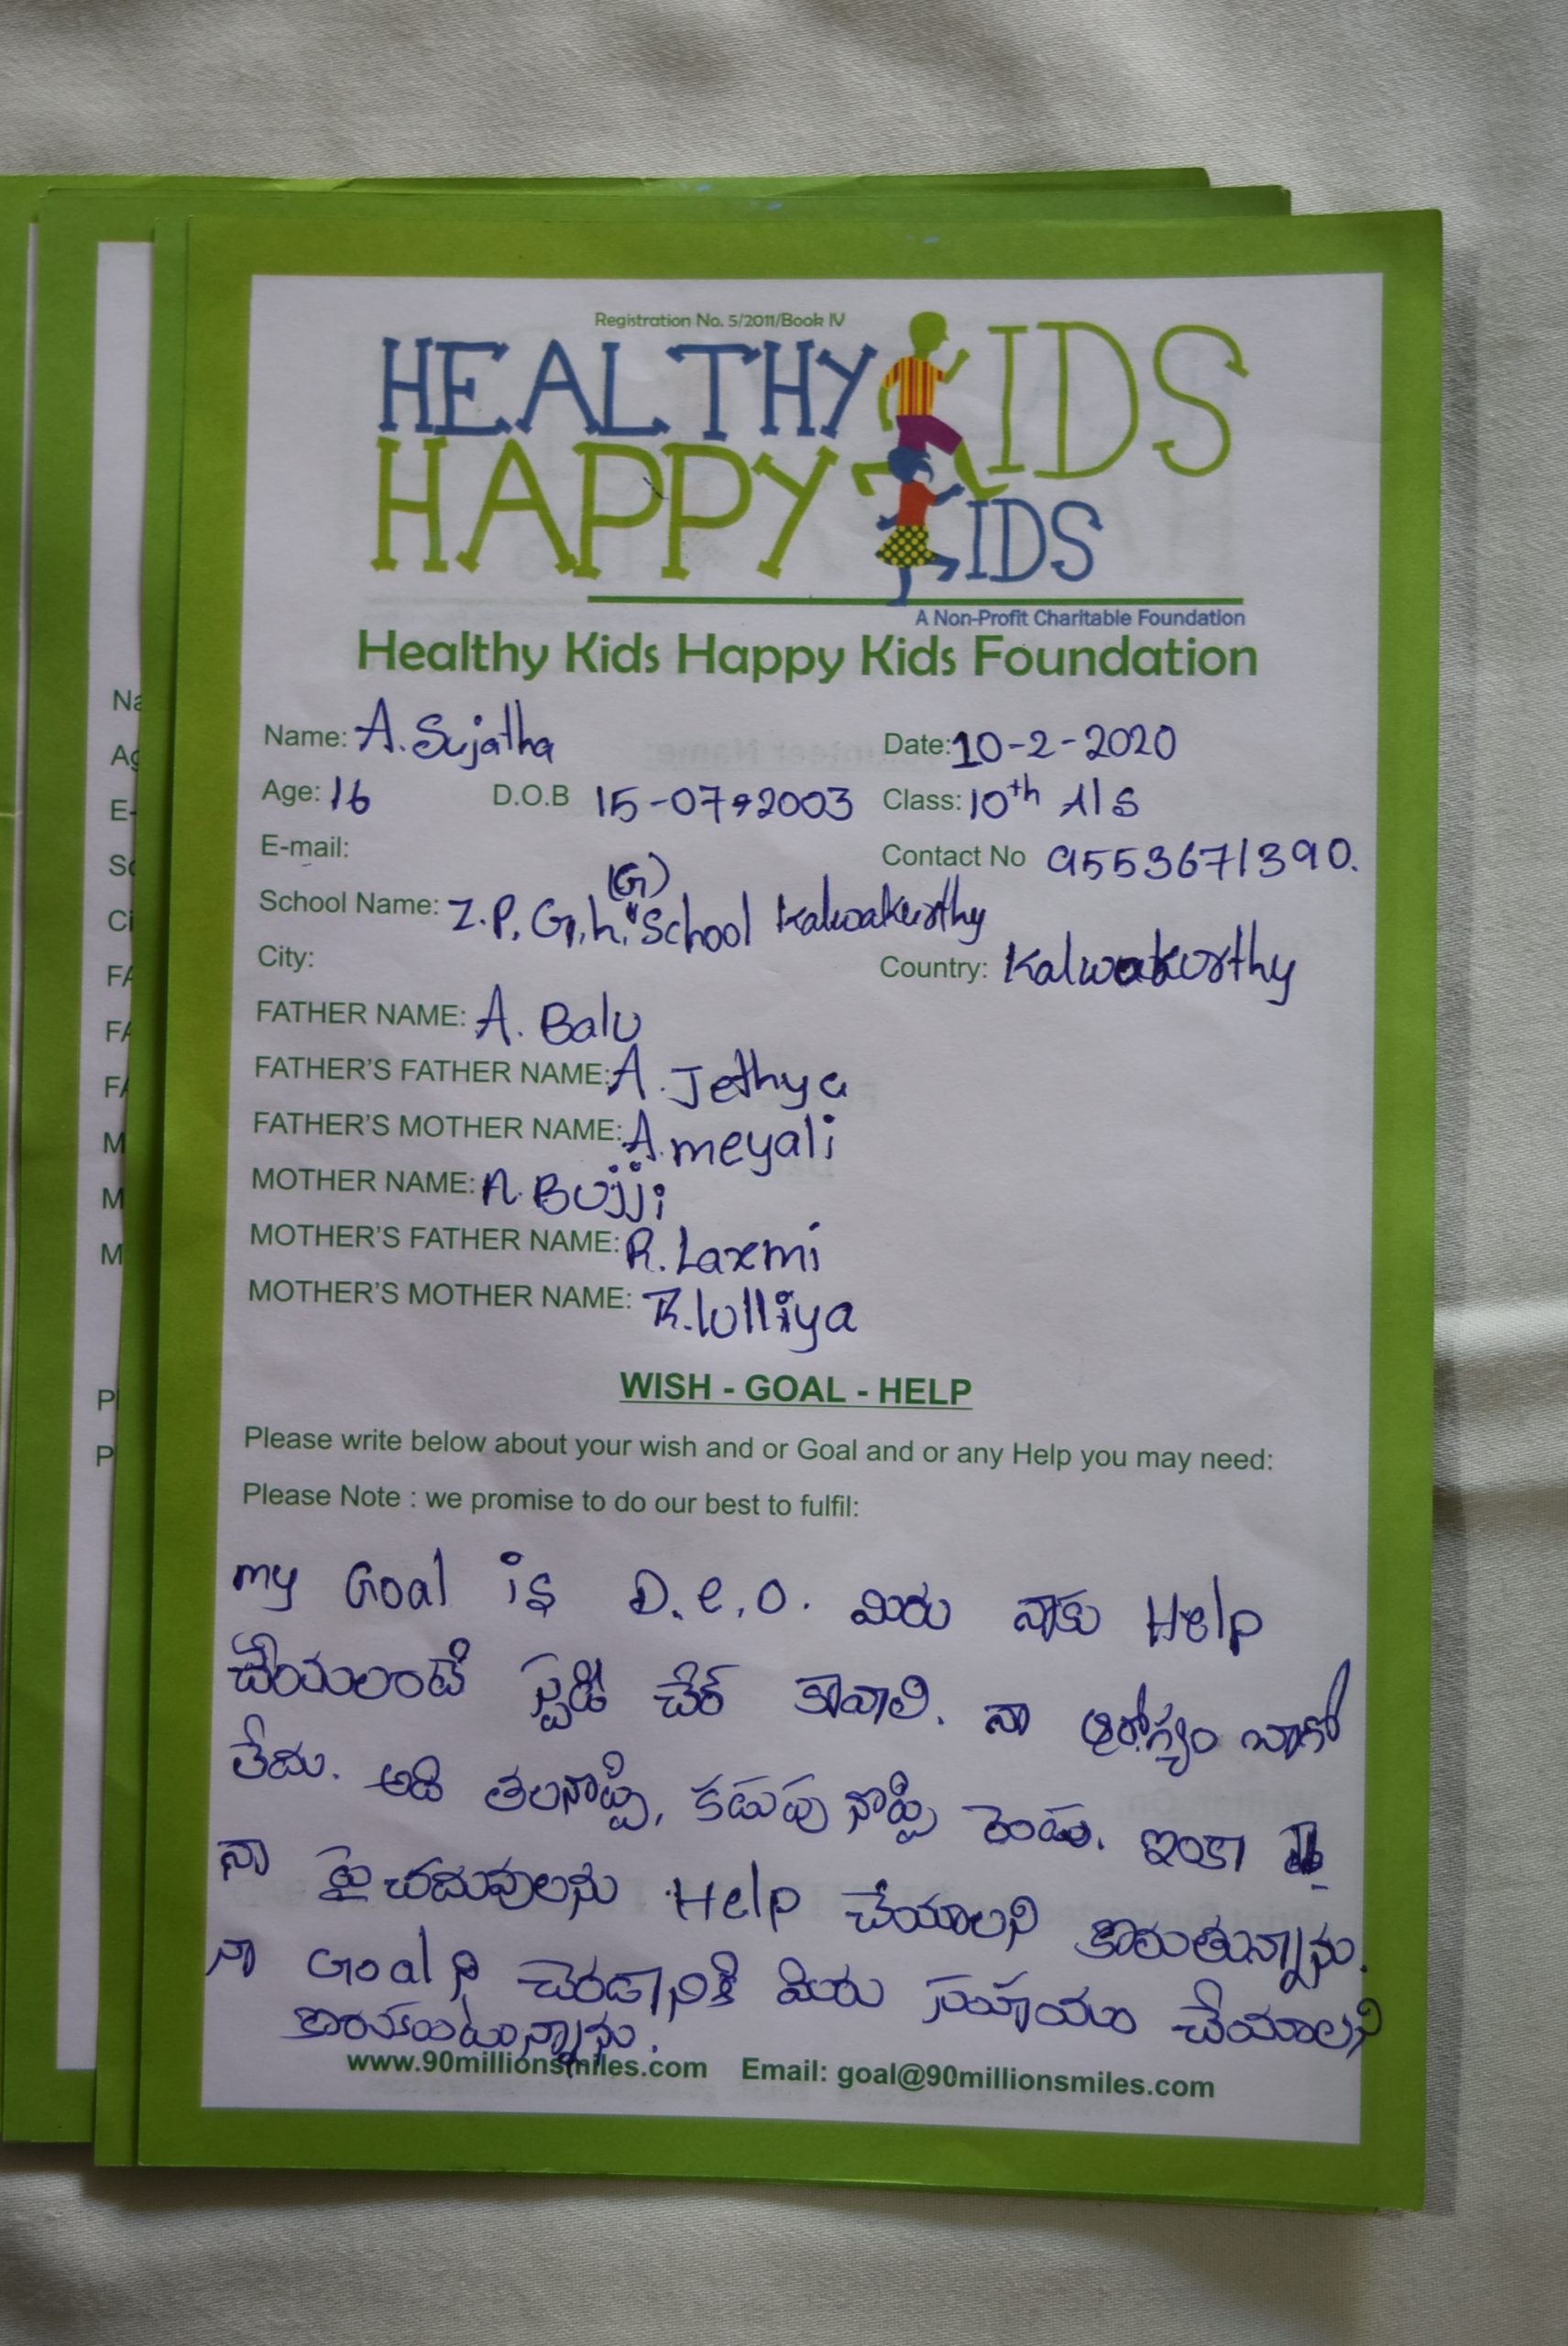 Registration No. 5/2011/Book IV
HEALTHY KIDS
HAPPY KIDS
A Non-Profit Charitable Foundation
Healthy Kids Happy Kids Foundation
Name: A. Sujatha Date: 10-2-2020
Age: 16 D.O.B 15-07-2003 Class: 10th A/S
E-mail: Contact No 9553671390.
(G)
School Name: Z.P.G.h. School Kalwakurthy
City: Country: Kalwakurthy
FATHER NAME: A. Balu
FATHER'S FATHER NAME: A. Jethya
FATHER'S MOTHER NAME: A. meyali
MOTHER NAME: A. Bujji
MOTHER'S FATHER NAME: R. Laxmi
MOTHER'S MOTHER NAME: R. lulliya
WISH - GOAL - HELP
Please write below about your wish and or Goal and or any Help you may need:
Please Note : we promise to do our best to fulfil:
my Goal is D.e.o. మిరు నాకు Help
చేయలంటే స్టడీ చేర్ కావాలి. నా ఆరోగ్యం బాగో
లేదు. అది తలనొప్పి, కడుపు నొప్పి రెండు. ఇంకా
నా పై చదువులను Help చేయాలని కొరుతున్నాను.
నా Goal ని చెరడానికి మిరు సహయం చేయాలని
www.90millionsmiles.com Email: goal@90millionsmiles.com